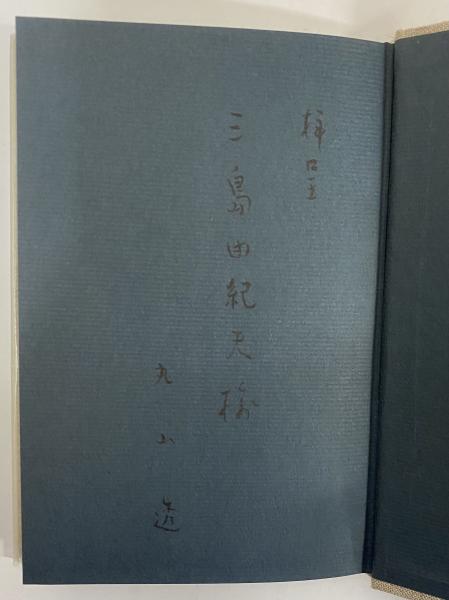 拝呈
三島由紀夫様
丸山透